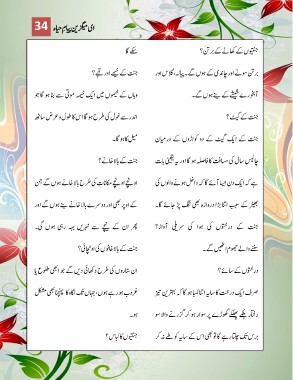 34 ای میگزین پیامِ حیاء
جنتیوں کے کھانے کے برتن؟
برتن سونے اور چاندی کے ہوں گے۔ پیالے، گلاس اور
آبخورے شیشے کے بنے ہوں گے۔
جنت کے گیٹ؟
جنت کے ایک گیٹ کے دو کواڑوں کے درمیان
چالیس سال کی مسافت کا فاصلہ ہوگا اور یہ یقینی بات
ہے کہ ایک دن ایسا آئے گا کہ داخل ہونے والوں کی
بھیڑ کے سبب اتنا بڑا دروازہ بھی تنگ پڑ جائے گا۔
جنت کے درختوں کی ہوا کی سریلی آواز؟
سننے والے جھوم اٹھیں گے۔
درختوں کے سائے؟
صرف ایک درخت کا سایہ اتنا لمبا ہوگا کہ بہترین تیز
رفتار ہلکے پھلکے گھوڑے پر سوار ہو کر گزرنے والا سو
برس تک چلتا رہے گا تو بھی اس کے سایہ کو طے نہ کر
سکے گا
جنت کے خیمے اور قبے؟
وہاں کے خیموں میں ایک خیمہ موتی سے بنا ہوگا جو
اندر سے خول کی طرح ہوگا اس کا طول و عرض ساٹھ
میل کا ہوگا۔
جنت کے بالا خانے؟
اونچے اونچے مکانات کی طرح بالا خانے ہوں گے جن
کے اوپر بھی اور دوسرے بالا خانے بنے ہوں گے اور
پھر ان کے نیچے سے نہریں بہہ رہی ہوں گی۔
جنت کے بالا خانوں کی اونچائی؟
ان ستاروں کی طرح دکھائی دیں گے جو ابھی طلوع یا
غروب ہو رہے ہوں، جہاں تک نگاہ کا پہنچنا بھی مشکل
ہو۔
جنتیوں کا لباس؟